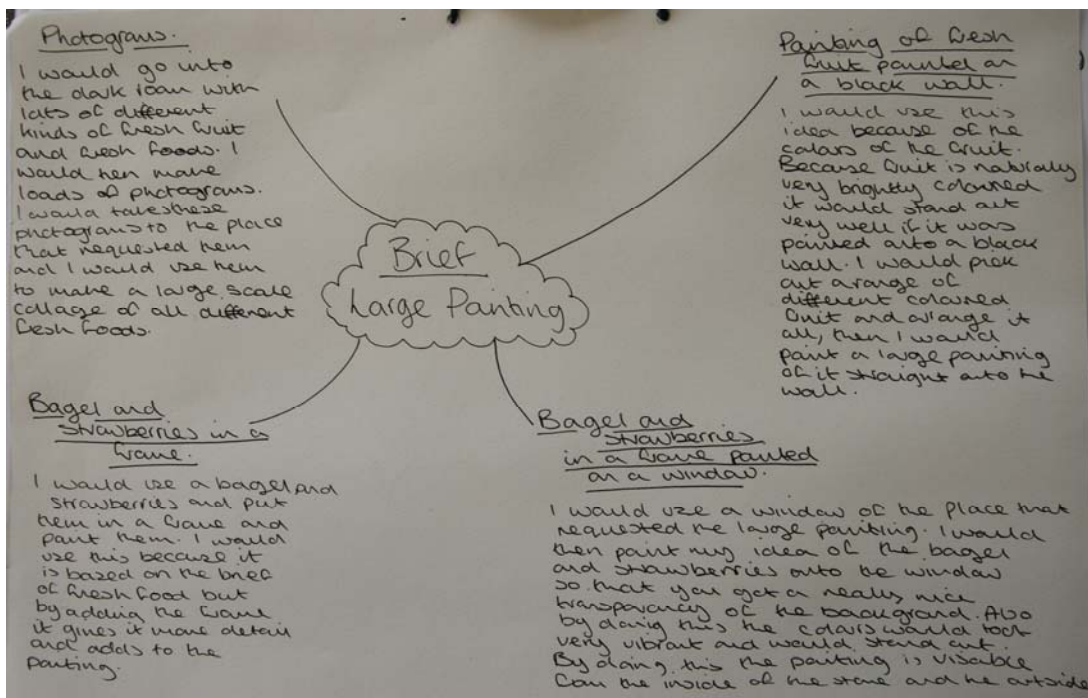 Photograms.
I would go into
the dark room with
lots of different
kinds of fresh fruit
and fresh foods. I
would then make
loads of photograms.
I would take these
photograms to the place
that requested them
and I would use them
to make a large scale
collage of all different
fresh foods.
Painting of fresh
fruit painted on
a black wall.
I would use this
idea because of the
colors of the fruit.
Because fruit is naturally
very brightly coloured
it would stand out
very well if it was
painted onto a black
wall. I would pick
out a range of
different coloured
fruit and arrange it
all, then I would
paint a large painting
of it straight onto the
wall.
Brief
Large Painting
Bagel and
strawberries in a
frame.
I would use a bagel and
strawberries and put
them in a frame and
paint them. I would
use this because it
is based on the brief
of fresh food but
by adding the frame
it gives it more detail
and adds to the
painting.
Bagel and
strawberries
in a frame painted
on a window.
I would use a window of the place that
requested the large painting. I would
then paint my idea of the bagel
and strawberries onto the window
so that you get a really nice
transparancy of the background. Also
by doing this the colors would look
very vibrant and would stand out.
By doing this the painting is visable
from the inside of the store and the outside